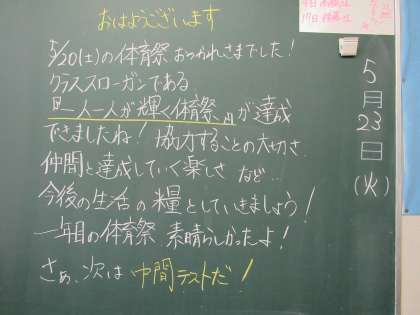 おはようございます
5/20(土)の体育祭おつかれさまでした!
クラススローガンである
『一人一人が輝く体育祭』が達成
できましたね! 協力することの大切さ
仲間と達成していく楽しさ など…
今後の生活の糧としていきましょう!
一年目の体育祭 素晴らしかったよ!
さぁ、次は中間テストだ!
5月23日(火)